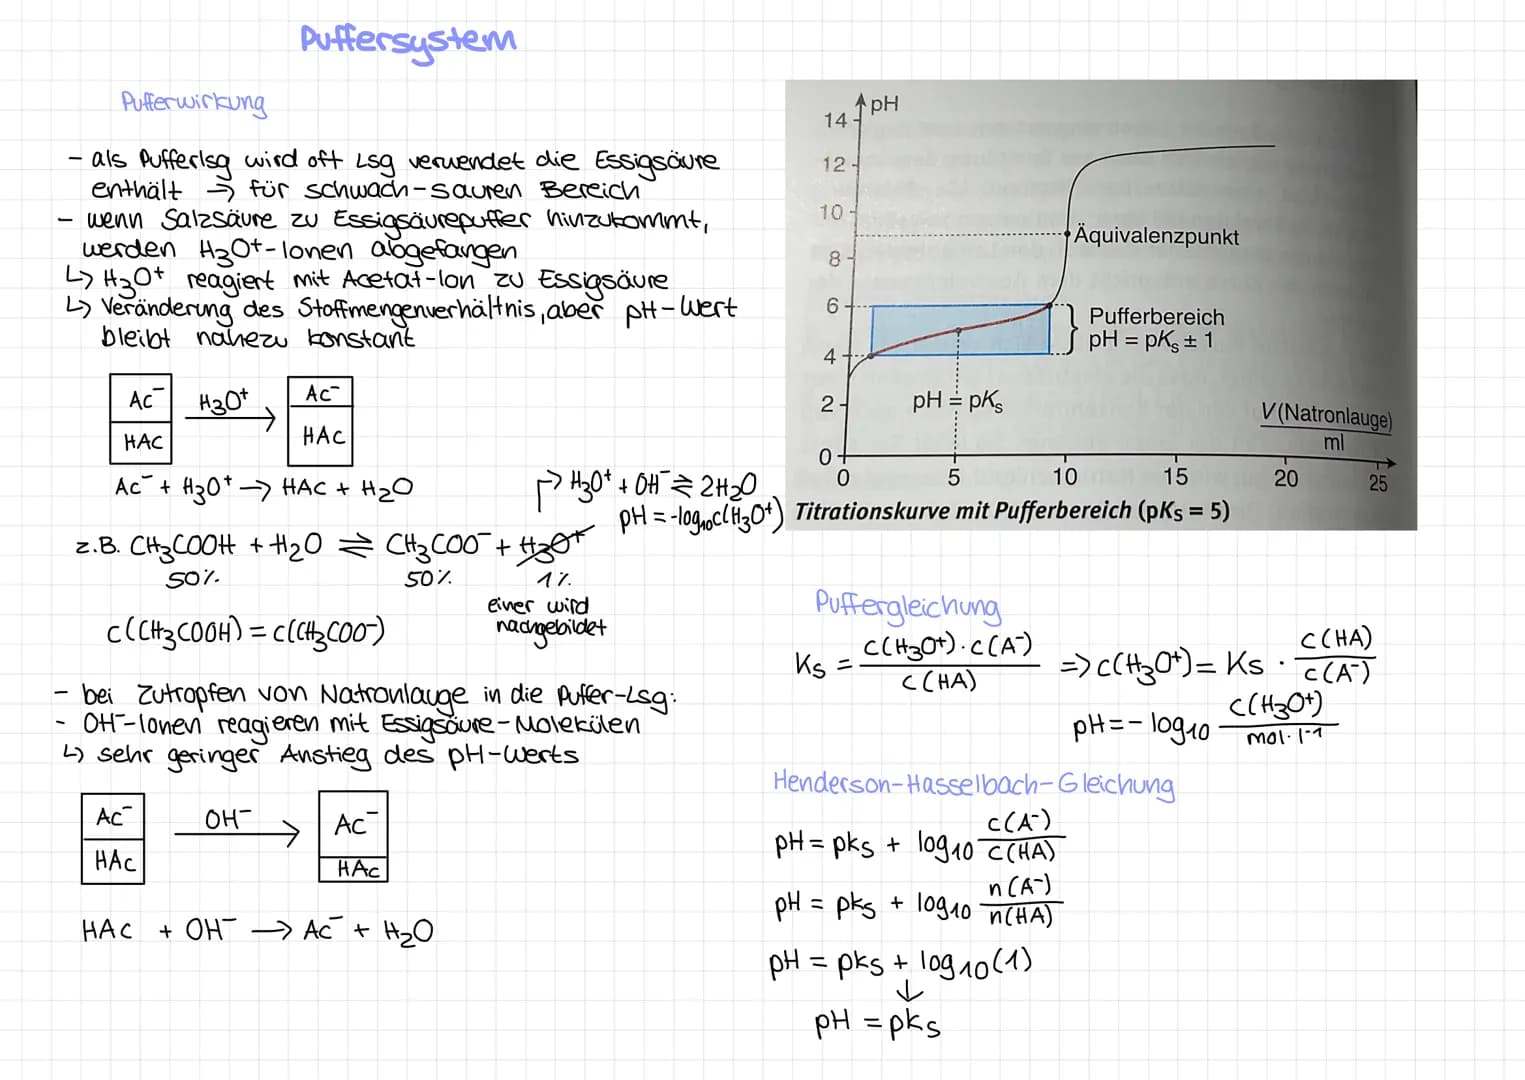 Puffersystem
Pufferwirkung
- als Pufferlsg wird oft Lsg verwendet die Essigsäure
enthält → für schwach-sauren Bereich
- wenn Salzsäure zu Essigsäurepuffer hinzukommt,
werden H₃O⁺-Ionen abgefangen
↳ H₃O⁺ reagiert mit Acetat-Ion zu Essigsäure
↳ Veränderung des Stoffmengenverhältnis, aber pH-Wert
bleibt nahezu konstant
Ac⁻ H₃O⁺ → Ac⁻
HAc HAc
Ac⁻ + H₃O⁺ → HAc + H₂O
↱ H₃O⁺ + OH⁻ ⇌ 2H₂O
pH = -log₁₀c(H₃O⁺)
z.B. CH₃COOH + H₂O ⇌ CH₃COO⁻ + H₃O⁺
50% 50% 1%
einer wird
nachgebildet
c(CH₃COOH) = c(CH₃COO⁻)
- bei Zutropfen von Natronlauge in die Puffer-Lsg:
- OH⁻-Ionen reagieren mit Essigsäure-Molekülen
↳ sehr geringer Anstieg des pH-Werts
Ac⁻ OH⁻ → Ac⁻
HAc HAc
HAc + OH⁻ → Ac⁻ + H₂O
pH
14
12
10
Äquivalenzpunkt
8
6
Pufferbereich
pH = pKs ± 1
4
2
pH = pKs
V(Natronlauge)
ml
0
0 5 10 15 20 25
Titrationskurve mit Pufferbereich (pKs = 5)
Puffergleichung
Ks = c(H₃O⁺)·c(A⁻) / c(HA) => c(H₃O⁺) = Ks · c(HA) / c(A⁻)
pH = - log₁₀ c(H₃O⁺) / mol·l⁻¹
Henderson-Hasselbach-Gleichung
pH = pks + log₁₀ c(A⁻) / c(HA)
pH = pks + log₁₀ n(A⁻) / n(HA)
pH = pks + log₁₀(1)
↓
pH = pks